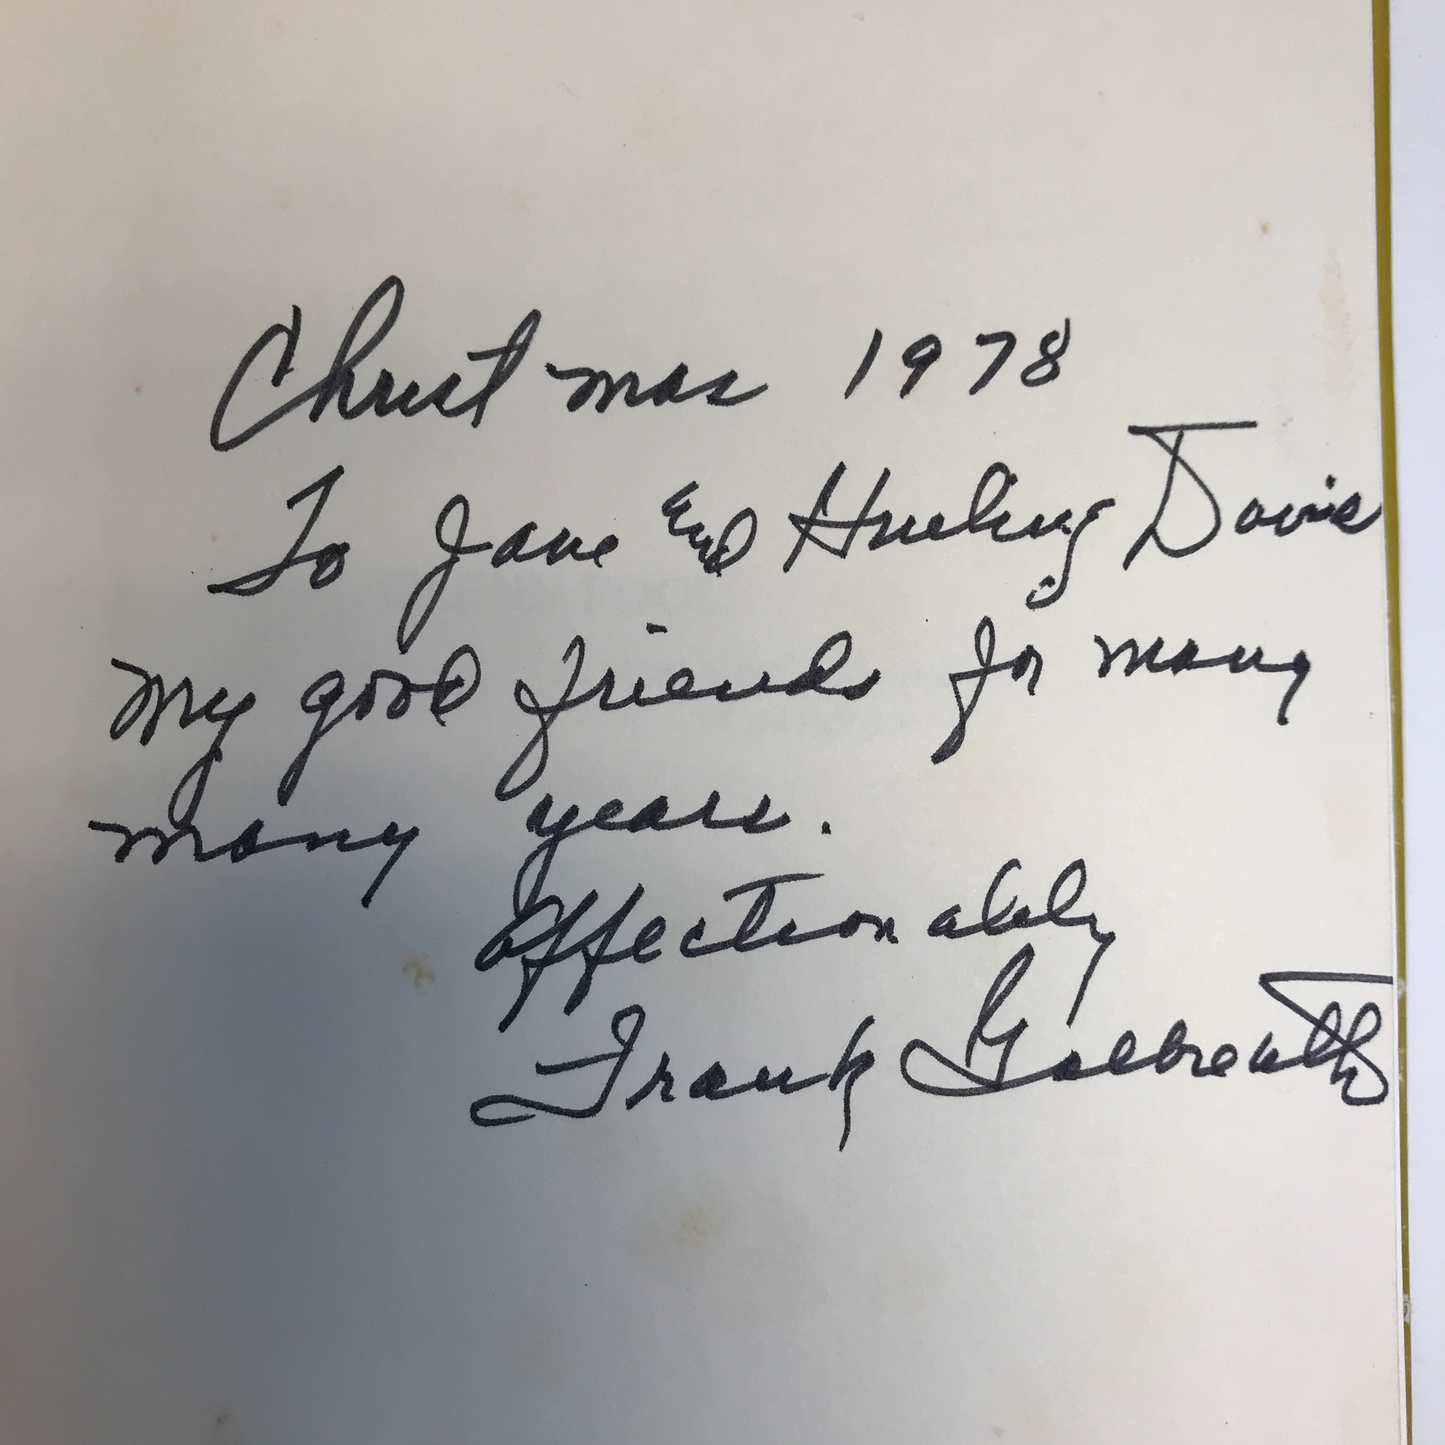 Christmas 1978
To Jane and Hurley Davis
My good friends for many
many years.
Affectionably
Frank Galbreath